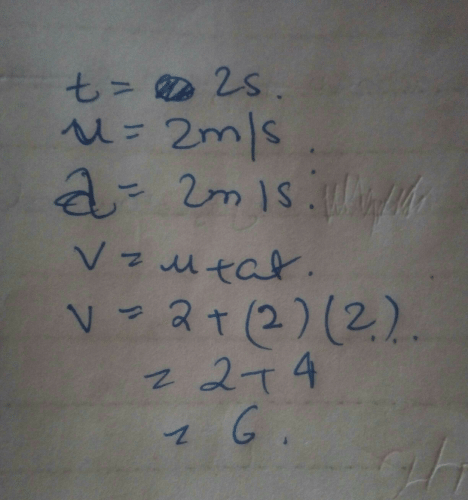 t = 2s.
u = 2m/s.
a = 2m/s.
v = u+at.
v = 2+(2)(2)..
= 2+4
= 6.